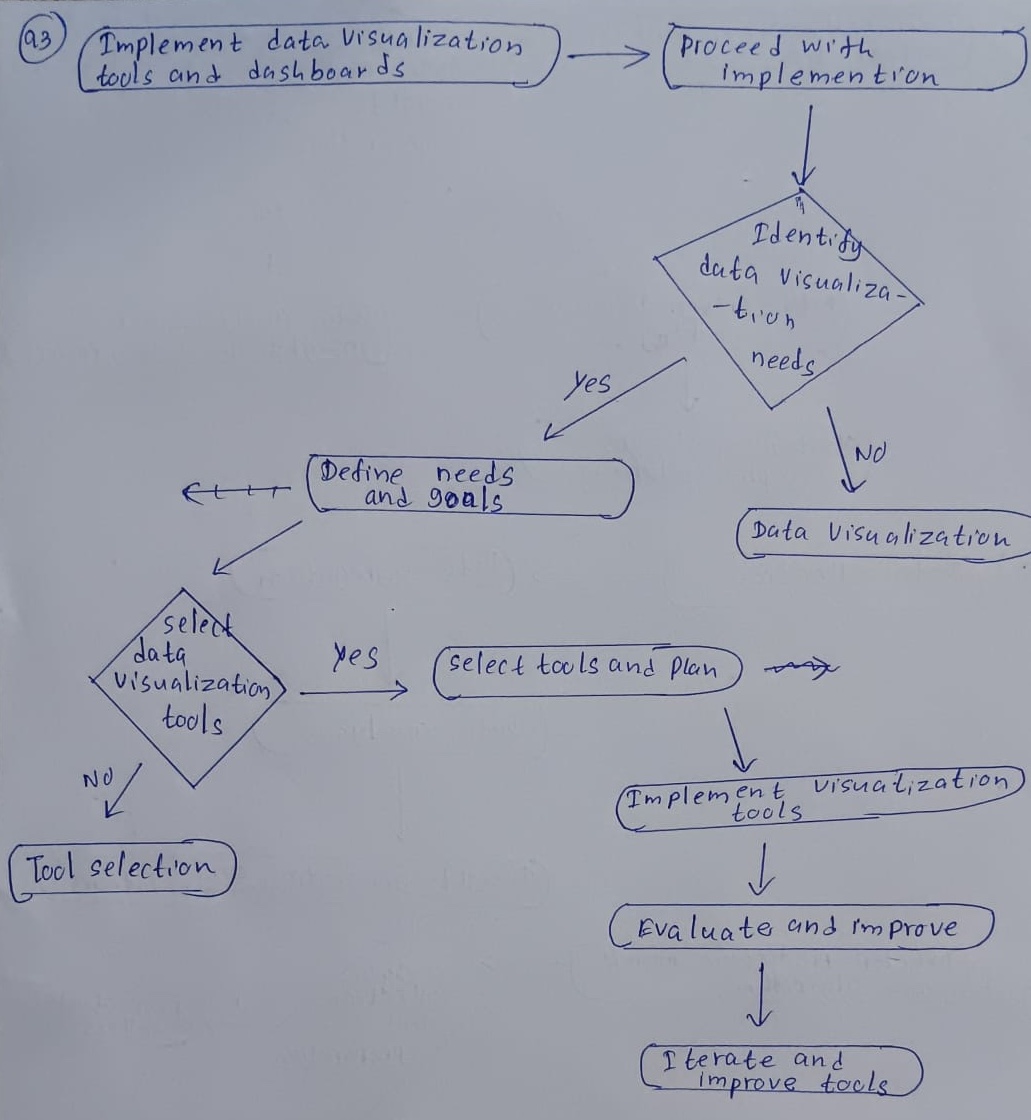 Q3
Implement data Visualization
tools and dashboards
Proceed with
implemention
Identify
data Visualiza-
-tion
needs
Yes
NO
Define needs
and goals
Data Visualization
select
data
Visualization
tools
Yes
select tools and Plan
NO
Implement Visualization
tools
Tool selection
Evaluate and improve
Iterate and
improve tools